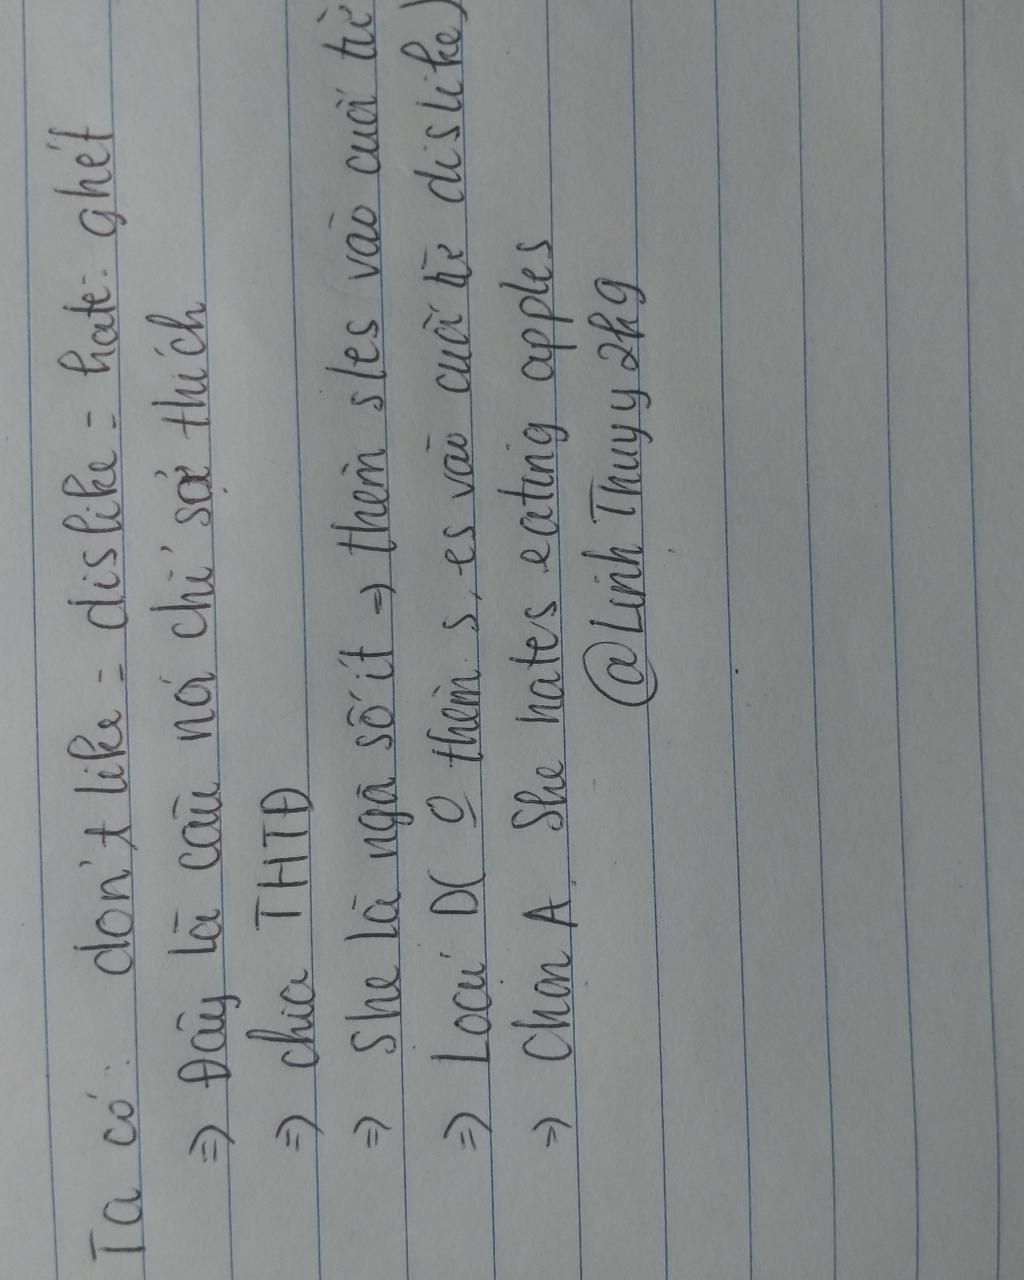 Ta có: don't like = dislike = hate: ghét
=> Đây là câu nói chỉ sở thích
=> chia THTĐ
=> She là ngã số ít => thêm s/es vào cuối từ
=> Loại D( 0 thêm s, es vào cuối từ dislike)
=> Chọn A. She hates eating apples
@Linh Thuyy2k9